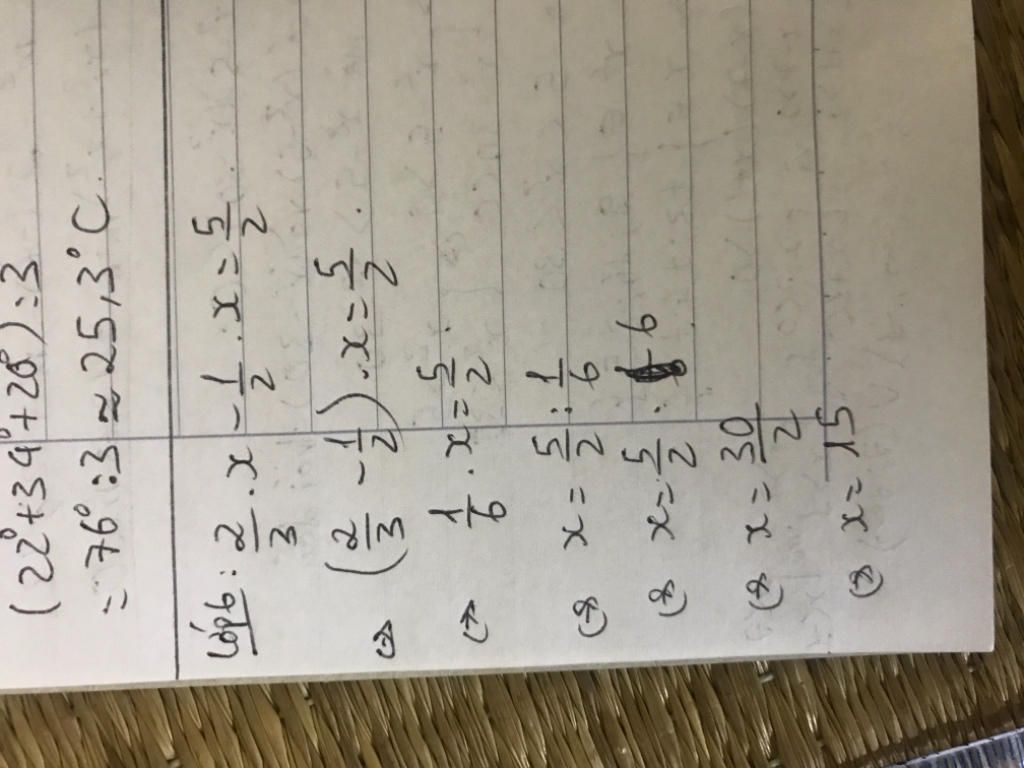 (22°+34°+20°):3
= 76°:3 ≈ 25,3°C.
Lớp 6: 2/3 . x - 1/2 . x = 5/2
<=> (2/3 - 1/2) . x = 5/2
<=> 1/6 . x = 5/2
<=> x = 5/2 : 1/6
<=> x = 5/2 . 6
<=> x = 30/2
<=> x = 15